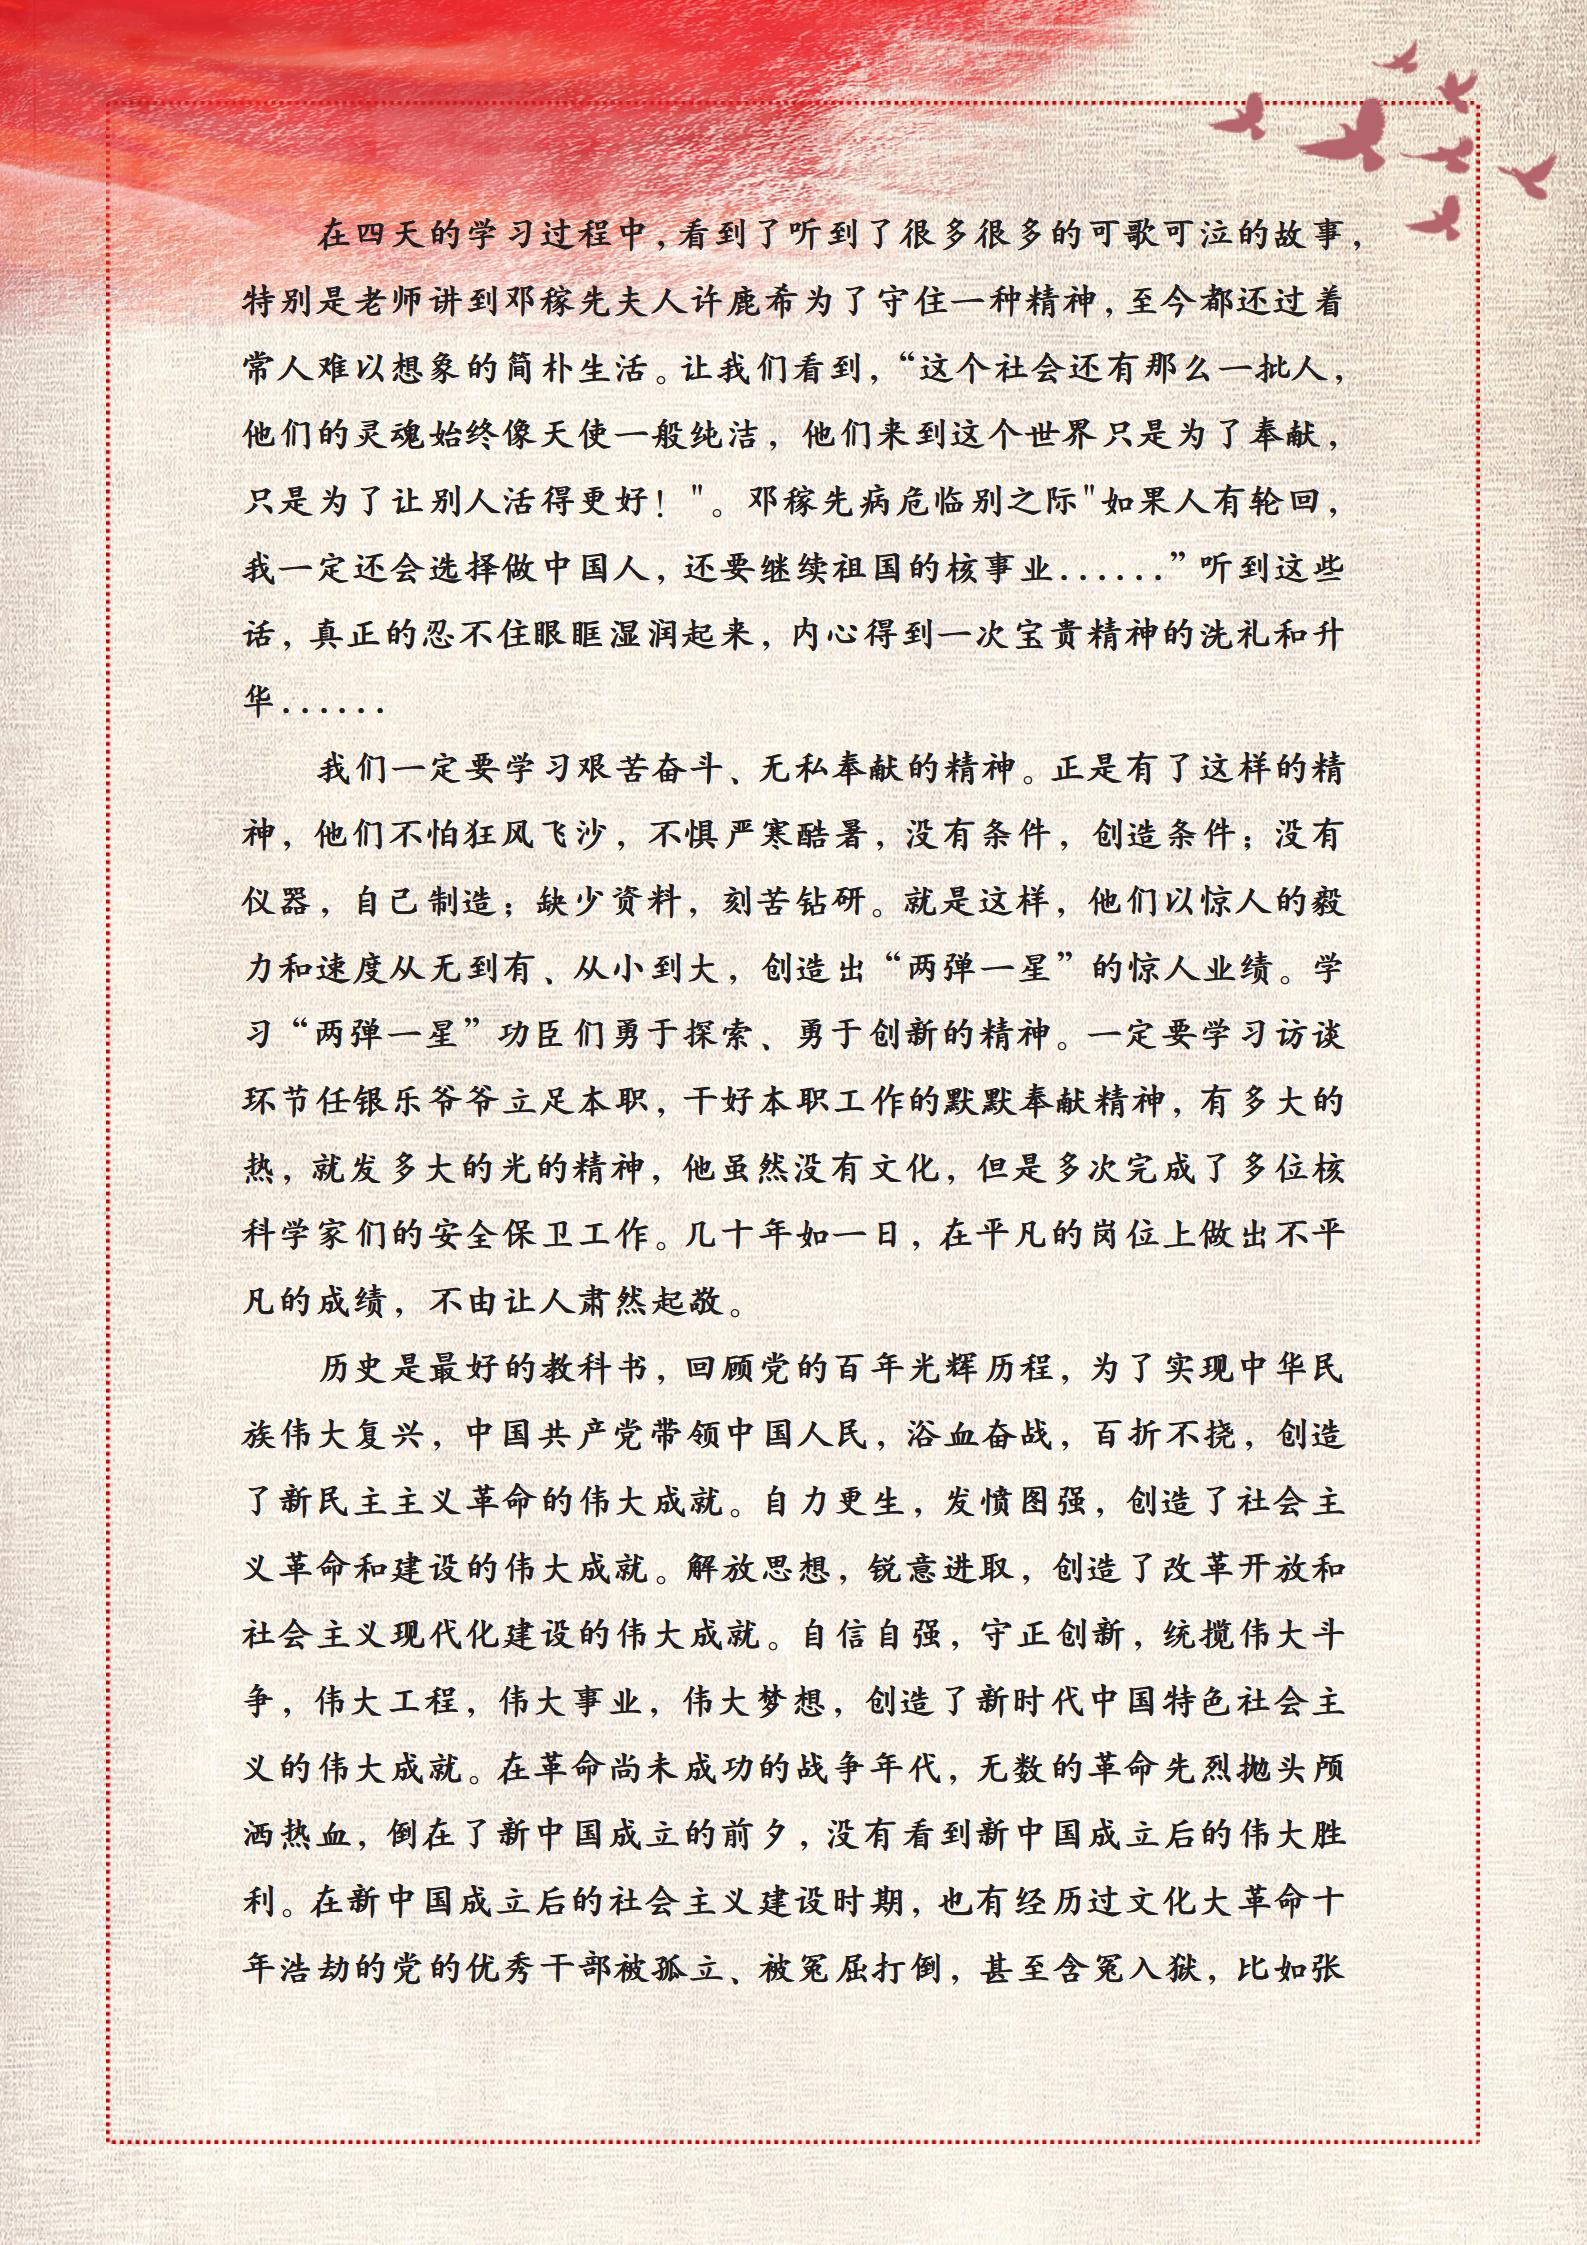 在四天的学习过程中，看到了听到了很多很多的可歌可泣的故事，
特别是老师讲到邓稼先夫人许鹿希为了守住一种精神，至今都还过着
常人难以想象的简朴生活。让我们看到，“这个社会还有那么一批人，
他们的灵魂始终像天使一般纯洁，他们来到这个世界只是为了奉献，
只是为了让别人活得更好！"。邓稼先病危临别之际"如果人有轮回，
我一定还会选择做中国人，还要继续祖国的核事业......”听到这些
话，真正的忍不住眼眶湿润起来，内心得到一次宝贵精神的洗礼和升
华......
我们一定要学习艰苦奋斗、无私奉献的精神。正是有了这样的精
神，他们不怕狂风飞沙，不惧严寒酷暑，没有条件，创造条件；没有
仪器，自己制造；缺少资料，刻苦钻研。就是这样，他们以惊人的毅
力和速度从无到有、从小到大，创造出“两弹一星”的惊人业绩。学
习“两弹一星”功臣们勇于探索、勇于创新的精神。一定要学习访谈
环节任银乐爷爷立足本职，干好本职工作的默默奉献精神，有多大的
热，就发多大的光的精神，他虽然没有文化，但是多次完成了多位核
科学家们的安全保卫工作。几十年如一日，在平凡的岗位上做出不平
凡的成绩，不由让人肃然起敬。
历史是最好的教科书，回顾党的百年光辉历程，为了实现中华民
族伟大复兴，中国共产党带领中国人民，浴血奋战，百折不挠，创造
了新民主主义革命的伟大成就。自力更生，发愤图强，创造了社会主
义革命和建设的伟大成就。解放思想，锐意进取，创造了改革开放和
社会主义现代化建设的伟大成就。自信自强，守正创新，统揽伟大斗
争，伟大工程，伟大事业，伟大梦想，创造了新时代中国特色社会主
义的伟大成就。在革命尚未成功的战争年代，无数的革命先烈抛头颅
洒热血，倒在了新中国成立的前夕，没有看到新中国成立后的伟大胜
利。在新中国成立后的社会主义建设时期，也有经历过文化大革命十
年浩劫的党的优秀干部被孤立、被冤屈打倒，甚至含冤入狱，比如张